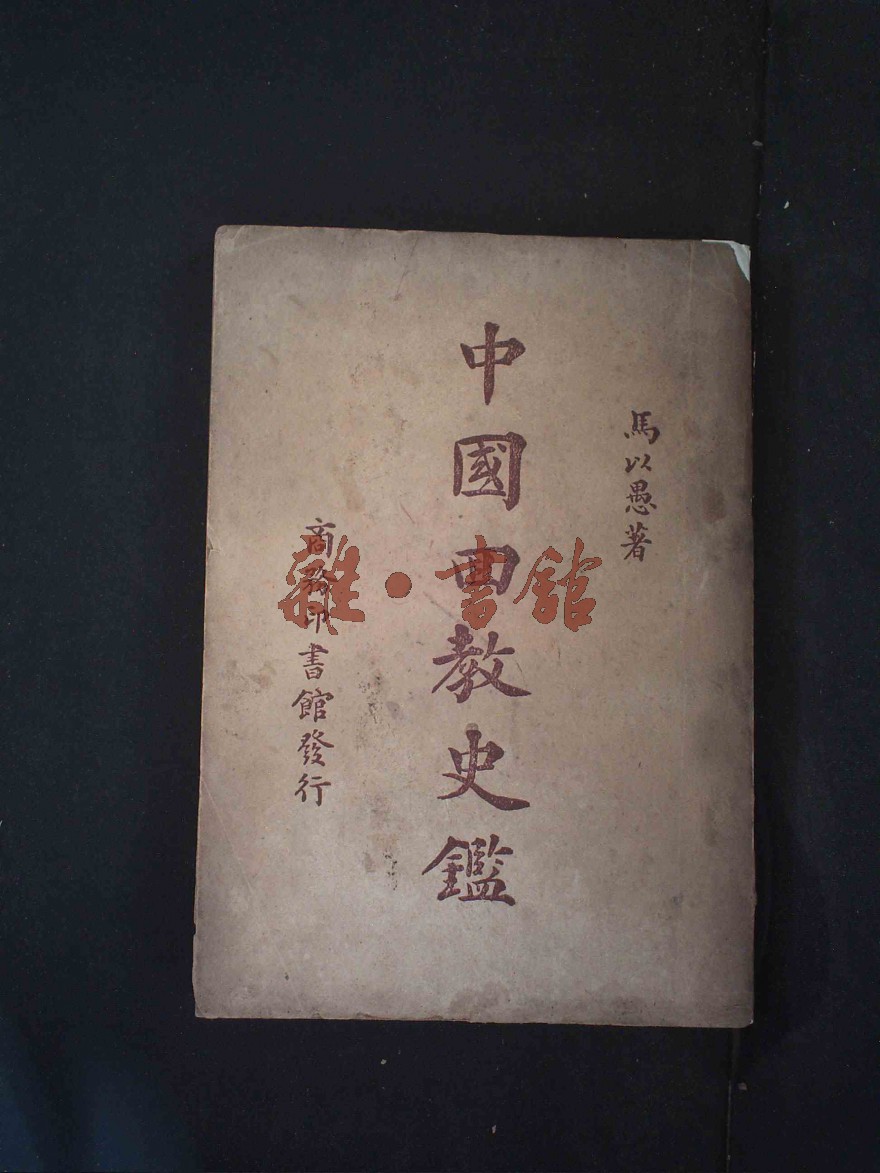 馬以愚著
中國回教史鑑
商務印書館發行
雜·書館